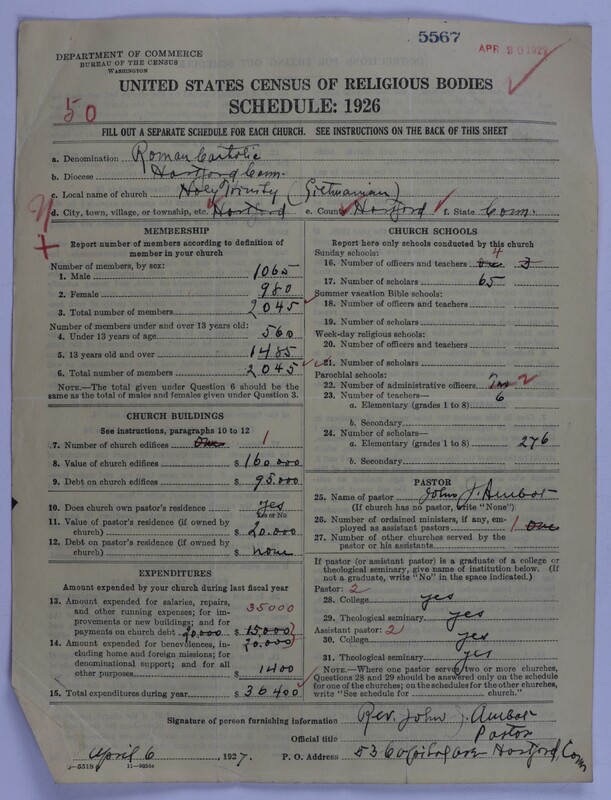 5567
APR 20 1927
DEPARTMENT OF COMMERCE
BUREAU OF THE CENSUS
WASHINGTON
UNITED STATES CENSUS OF RELIGIOUS BODIES
SCHEDULE: 1926
50
FILL OUT A SEPARATE SCHEDULE FOR EACH CHURCH. SEE INSTRUCTIONS ON THE BACK OF THIS SHEET
a. Denomination Roman Catholic
b. Diocese Hartford Conn.
c. Local name of church Holy Trinity (Lithuanian)
d. City, town, village, or township, etc. Hartford e. County Hartford f. State Conn.
MEMBERSHIP
Report number of members according to definition of
member in your church
Number of members, by sex:
1. Male 1065
2. Female 980
3. Total number of members 2045
Number of members under and over 13 years old:
4. Under 13 years of age 560
5. 13 years old and over 1485
6. Total number of members 2045
NOTE.—The total given under Question 6 should be
the same as the total of males and females given under Question 3.
CHURCH BUILDINGS
See instructions, paragraphs 10 to 12
7. Number of church edifices One 1
8. Value of church edifices $ 160.000
9. Debt on church edifices $ 95.000
10. Does church own pastor's residence yes
Yes or No
11. Value of pastor's residence (if owned by
church) $ 20.000
12. Debt on pastor's residence (if owned by
church) $ none
EXPENDITURES
Amount expended by your church during last fiscal year
13. Amount expended for salaries, repairs,
and other running expenses; for im- 35000
provements or new buildings; and for
payments on church debt 20.000 $ 15.000
14. Amount expended for benevolences, in- 20.000
cluding home and foreign missions; for
denominational support; and for all
other purposes $ 1400
15. Total expenditures during year $ 36400
CHURCH SCHOOLS
Report here only schools conducted by this church
Sunday schools: 4
16. Number of officers and teachers One 3
17. Number of scholars 65
Summer vacation Bible schools:
18. Number of officers and teachers
19. Number of scholars
Week-day religious schools:
20. Number of officers and teachers
21. Number of scholars
Parochial schools:
22. Number of administrative officers Two 2
23. Number of teachers— 6
a. Elementary (grades 1 to 8)
b. Secondary
24. Number of scholars—
a. Elementary (grades 1 to 8) 276
b. Secondary
PASTOR
25. Name of pastor John J. Ambot
(If church has no pastor, write "None")
26. Number of ordained ministers, if any, em-
ployed as assistant pastors 1 One
27. Number of other churches served by the
pastor or his assistants
If pastor (or assistant pastor) is a graduate of a college or
theological seminary, give name of institution below. (If
not a graduate, write "No" in the space indicated.)
Pastor: 2
28. College yes
29. Theological seminary yes
Assistant pastor: 2
30. College yes
31. Theological seminary yes
NOTE.—Where one pastor serves two or more churches,
Questions 28 and 29 should be answered only on the schedule
for one of the churches; on the schedules for the other churches,
write "See schedule for church."
Signature of person furnishing information Rev. John J. Ambot
Official title Pastor
April 6, 1927. P. O. Address 53 Capitol ave Hartford, Conn